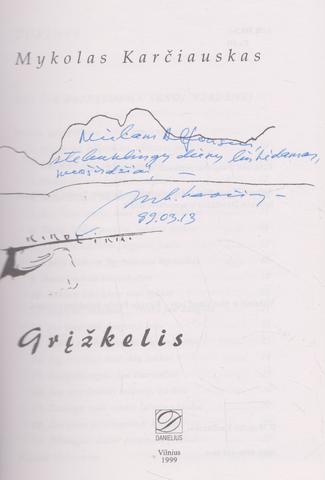 Mykolas Karčiauskas
Mielam Alfonsui,
stebuklingų dienų linkėdamas,
nuoširdžiai –
99.03.13
Grįžkelis
DANIELIUS
Vilnius
1999